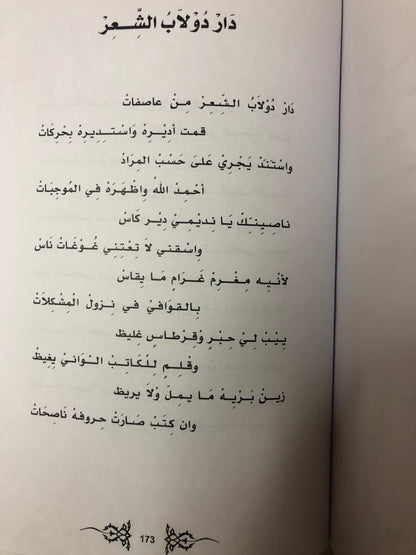 دَارْ دُوْلاَبُ الشِّعِرْ
دَارْ دُوْلاَبُ الشِّعِرْ مِنْ عاصفاتْ
قمت أدِيْرِهْ وَاسْتِدِيرِهْ بِحْرِكَاتْ
واسْتَنَدْ يَجْرِيْ عَلىَ حَسْبْ المِرَادْ
أحْمِدْ اللهْ واظْهَرَهْ فِي الموجِبَاتْ
ناصِينِكْ يَا نِدِيمِيْ دِيْر كَاسْ
وِاسْقني لاَ تِعْتِنِيْ غُوْغَاتْ نَاسْ
لأنِّيِهْ مِغْرِمْ غَرَامِ مَا يقاسْ
بِالقوَافيْ في نزولْ المِشْكِلاَتْ
يِيْبْ لِيْ حِبْرِ وْقرطاسِ غليظ
وقْلِمِ للْكَاتِبْ التوانيْ يِغِيظْ
زينْ بَرْيِهْ مَا يِملّ وْلاَ يريظ
وان كِتَبْ صَارَتْ حِروفهْ نَاصِحَاتْ
173